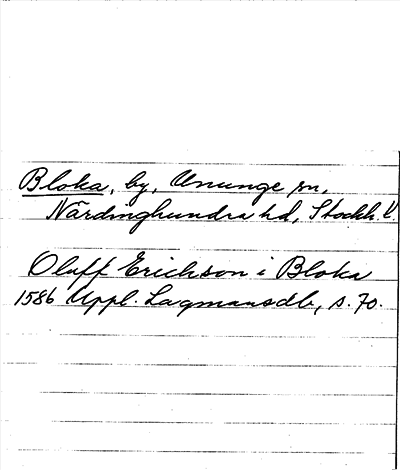 Bloka, by, Ununge sn,
Närdinghundra hd, Stockh. l.
Oluff Erichson i Bloka
1586 Uppl. Lagmansdb, s. 70.